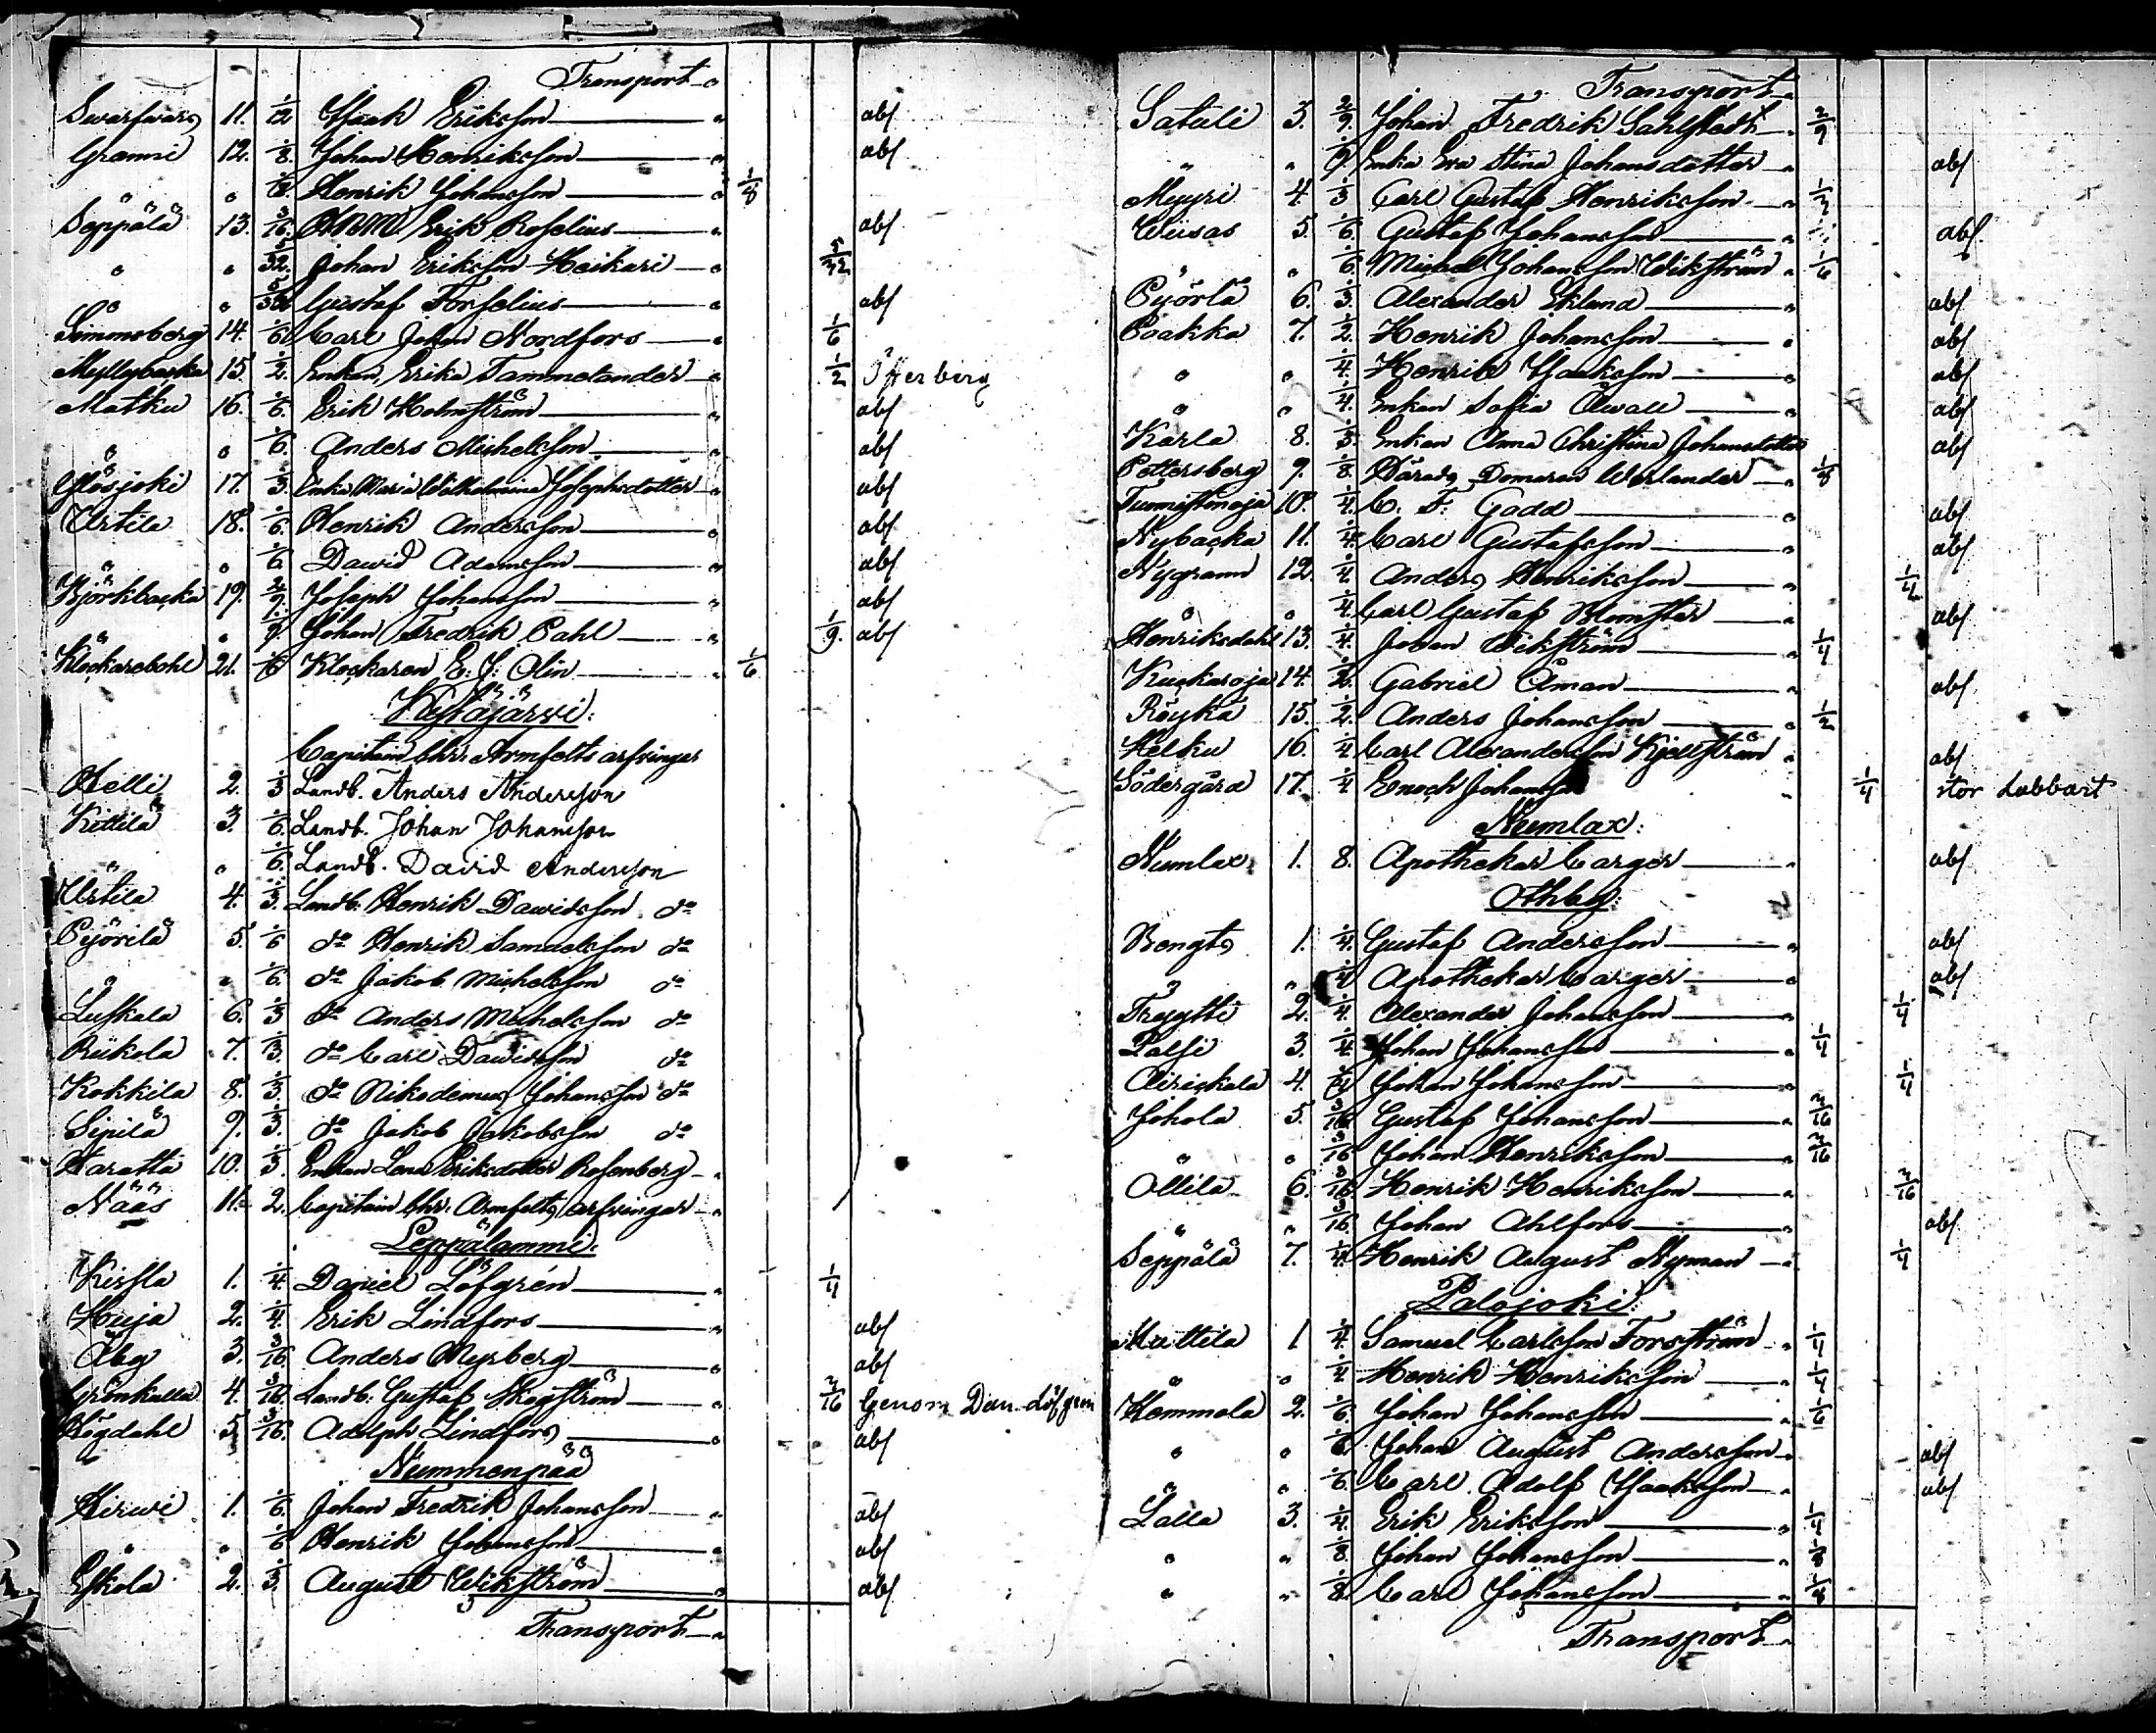 Transport
Swarfwars 11. 1/12 Isaak Eriksson abs
Granni 12. 1/8. Johan Henriksson abs
" " 1/8. Henrik Johansson 1/8
Seppälä 13. 3/16. Erik Roselius abs
" " 5/32. Johan Eriksson Heikari 5/32
" " 5/32 Gustaf Forselius abs
Simonsberg 14. 1/6 Carl Johan Nordfors 1/6
Myllybacka 15. 1/2. Enkan Erika Tammelander 1/2 Offerberg
Matku 16. 1/6. Erik Holmström abs
" " 1/6. Anders Michelsson abs
Ylösjoki 17. 1/3. Enka Maria Wilhelmina Josephsdotter abs
Urtila 18. 1/6. Henrik Andersson abs
" " 1/6 David Adamsson abs
Björkbacka 19. 2/9. Joseph Johansson abs
" 1/9. Johan Fredrik Pahl 1/9. abs
Klockarebohl 21. 1/6 Klockaren E. J. Olin 1/6
Kytäjärvi:
Capitain Chr. Armfelts arfvingar
Helli 2. 1/3 Landb. Anders Andersson
Kittilä 3. 1/6. Landb. Johan Johansson
" " 1/6. Landb. David Andersson
Urtila 4. 1/3. Landb. Henrik Davidsson do
Pyörilä 5. 1/6 do Henrik Samuelsson do
" " 1/6. do Jakob Michelsson do
Luskala 6. 1/3 do Anders Michelsson do
Riikola 7. 1/3. do Carl Davidsson do
Kokkila 8. 1/3. do Nikodemus Johansson do
Sipilä 9. 1/3. do Jakob Jakobsson do
Haratta 10. 1/3. Enkan Lena Eriksdotter Rosenberg
Nääs 11. 2. Capitain Chr. Armfelts arfvingar
Leppälammi.
Kissla 1. 1/4. Daniel Löfgrén 1/4
Huja 2. 1/4. Erik Lindfors abs
Åby 3. 3/16 Anders Myrberg abs
Grönkulla 4. 3/16. Landb. Gustaf Skogström 3/16 Genom Dan. Löfgren
Högdahl 5. 3/16. Adolph Lindfors abs
Nummenpää
Hirwi 1. 1/6. Johan Fredrik Johansson abs
" " 1/6 Henrik Johansson abs
Eskola 2. 1/3. August Wikström abs
Transport
Transport
Satuli 3. 2/9. Johan Fredrik Sahlstedt 2/9
" " 1/9 Enka Eva Stina Johansdotter abs
Myyri 4. 1/3 Carl Gustaf Henriksson 1/3
Wiisas 5. 1/6. Gustaf Johansson abs.
" 1/6. Michel Johansson Wikström 1/6
Pyörlä 6. 1/3. Alexander Eklund abs
Paakka 7. 1/2. Henrik Johansson abs
" " 1/4. Henrik Isaaksson abs
" " 1/4. Enkan Sofia Awall abs
Karla 8. 1/3. Enkan Anna Christina Johansdotter abs
Pettersberg 9. 1/8. Härads Domaren Werlander 1/8
Tunnistinoja 10. 1/4. C. F. Gadd abs
Nybacka 11. 1/4. Carl Gustafsson abs
Nygrann 12. 1/4 Anders Henriksson 1/4
" " 1/4. Carl Gustaf Blomster abs
Henriksdahl 13. 1/4. Johan Wikström 1/4
Kuckaroja 14. 1/2. Gabriel Åman abs
Röykä 15. 1/2. Anders Johansson 1/2
Helku 16. 1/4 Carl Alexandersson Kjellström abs
Södergård 17. 1/4 Enoch Johansson 1/4 stor Labbart
Numlax:
Numlax 1. 8. Apothekar Carger abs
Åhby:
Bengts 1. 1/4. Gustaf Andersson abs
" 1/4 Apothekar Carger abs
Tryytti 2. 1/4. Alexander Johansson 1/4
Palsi 3. 1/4 Johan Johansson 1/4
Airiskala 4. 1/4 Johan Johansson 1/4
Johola 5. 3/16 Gustaf Johansson 3/16
" " 3/16 Johan Henriksson 3/16
Ollila 6. 3/16 Henrik Henriksson 3/16
" 3/16. Johan Ahlfors abs
Seppälä 7. 1/4. Henrik August Nyman 1/4
Palojoki:
Mattila 1 1/4. Samuel Carlsson Forsström 1/4
" " 1/4 Henrik Henriksson 1/4
Hemmola 2. 1/6. Johan Johansson 1/6
" " 1/6. Johan August Andersson abs
" " 1/6. Carl Adolf Isaaksson abs
Lalla 3. 1/4. Erik Eriksson 1/4
" " 1/8. Johan Johansson 1/8
" " 1/8. Carl Johansson 1/8
Transport